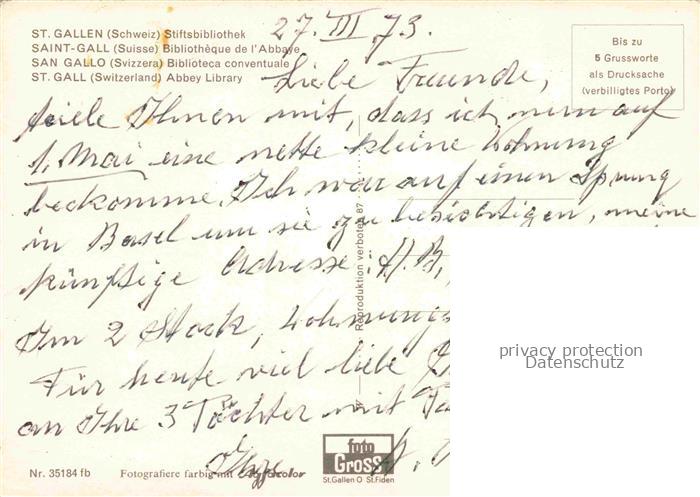 ST. GALLEN (Schweiz) Stiftsbibliothek
SAINT-GALL (Suisse) Bibliothèque de l'Abbaye
SAN GALLO (Svizzera) Biblioteca conventuale
ST. GALL (Switzerland) Abbey Library
27. III 73.
Bis zu
5 Grussworte
als Drucksache
(verbilligtes Porto)
Liebe Freunde,
teile Ihnen mit, dass ich nun auf
1. Mai eine nette kleine Wohnung
beckomme. Ich war auf einen Sprung
in Basel um sie zu besichtigen, meine
künftige Adresse: H. B,
Im 2 Stock, Wohnungs
Für heute viel liebe
an Ihre 3 Töchter mit
Reproduktion verboten 87
privacy protection
Datenschutz
foto
Gross
St.Gallen O St.Fiden
Nr. 35184 fb Fotografiere farbig mit Agfacolor